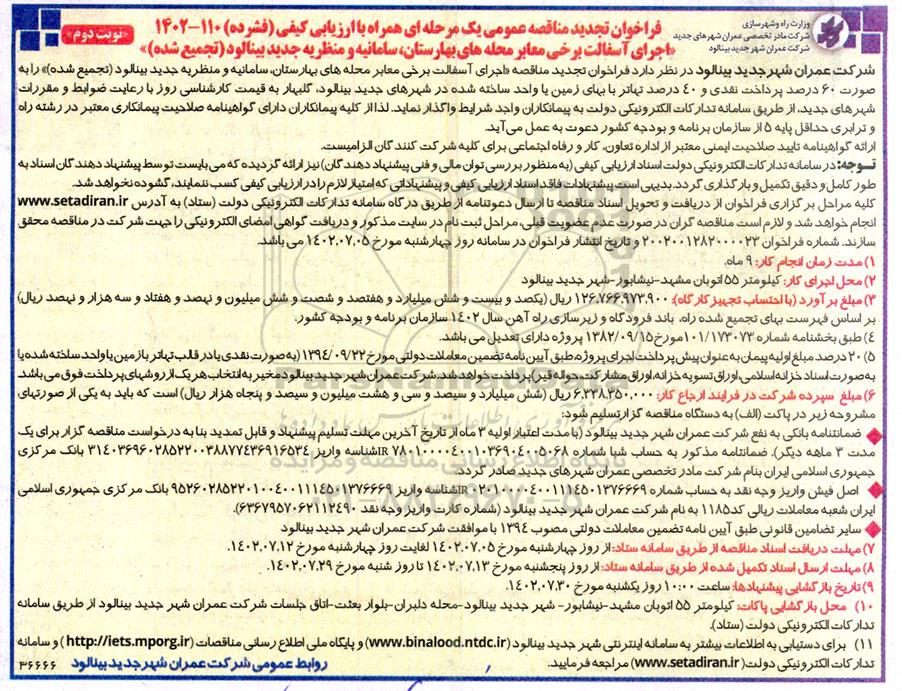 وزارت راه و شهرسازی
شرکت مادر تخصصی عمران شهرهای جدید
شرکت عمران شهر جدید بینالود
فراخوان تجدید مناقصه عمومی یک مرحله ای همراه با ارزیابی کیفی (فشرده) ۱۱۰-۱۴۰۲
«نوبت دوم»
«اجرای آسفالت برخی معابر محله های بهارستان، سامانیه و منظریه جدید بینالود (تجمیع شده)»
شرکت عمران شهر جدید بینالود در نظر دارد فراخوان تجدید مناقصه «اجرای آسفالت برخی معابر محله های بهارستان، سامانیه و منظریه جدید بینالود (تجمیع شده)» را به
صورت ۶۰ درصد پرداخت نقدی و ۴۰ درصد تهاتر با بهای زمین یا واحد ساخته شده در شهرهای جدید بینالود، گلبهار به قیمت کارشناسی روز با رعایت ضوابط و مقررات
شهرهای جدید، از طریق سامانه تدارکات الکترونیکی دولت به پیمانکاران واجد شرایط واگذار نماید. لذا از کلیه پیمانکاران دارای گواهینامه صلاحیت پیمانکاری معتبر در رشته راه
و ترابری حداقل پایه ۵ از سازمان برنامه و بودجه کشور دعوت به عمل می آید.
ارائه گواهینامه تایید صلاحیت ایمنی معتبر از اداره تعاون، کار و رفاه اجتماعی برای کلیه شرکت کنندگان الزامیست.
توجه: در سامانه تدارکات الکترونیکی دولت اسناد ارزیابی کیفی (به منظور بررسی توان مالی و فنی پیشنهاد دهندگان) نیز ارائه گردیده که می بایست توسط پیشنهاد دهندگان اسناد به
طور کامل و دقیق تکمیل و بارگذاری گردد. بدیهی است پیشنهادات فاقد اسناد ارزیابی کیفی و پیشنهاداتی که امتیاز لازم را در ارزیابی کیفی کسب ننمایند، گشوده نخواهد شد.
کلیه مراحل برگزاری فراخوان از دریافت و تحویل اسناد مناقصه تا ارسال دعوتنامه از طریق درگاه سامانه تدارکات الکترونیکی دولت (ستاد) به آدرس www.setadiran.ir
انجام خواهد شد و لازم است مناقصه گران در صورت عدم عضویت قبلی، مراحل ثبت نام در سایت مذکور و دریافت گواهی امضای الکترونیکی را جهت شرکت در مناقصه محقق
سازند. شماره فراخوان ۲۰۰۲۰۰۱۲۸۲۰۰۰۰۲۳ و تاریخ انتشار فراخوان در سامانه روز چهارشنبه مورخ ۱۴۰۲.۰۷.۰۵ می باشد.
۱) مدت زمان انجام کار: ۹ ماه.
۲) محل اجرای کار: کیلومتر ۵۵ اتوبان مشهد-نیشابور-شهر جدید بینالود
۳) مبلغ برآورد (با احتساب تجهیز کارگاه): ۱۲۶,۷۶۶,۹۷۳,۹۰۰ ریال (یکصد و بیست و شش میلیارد و هفتصد و شصت و شش میلیون و نهصد و هفتاد و سه هزار و نهصد ریال)
بر اساس فهرست بهای تجمیع شده راه، باند فرودگاه و زیرسازی راه آهن سال ۱۴۰۲ سازمان برنامه و بودجه کشور.
۴) طبق بخشنامه شماره ۱۰۱/۱۷۳۰۷۳ مورخ ۱۳۸۲/۰۹/۱۵ پروژه دارای تعدیل می باشد.
۵) ۲۰ درصد مبلغ اولیه پیمان به عنوان پیش پرداخت اجرای پروژه طبق آیین نامه تضمین معاملات دولتی مورخ ۱۳۹۴/۰۹/۲۲ (به صورت نقدی یا در قالب تهاتر با زمین یا واحد ساخته شده یا
به صورت اسناد خزانه اسلامی، اوراق تسویه خزانه، اوراق مشارکت، حواله قیر) پرداخت خواهد شد. شرکت عمران شهر جدید بینالود مخیر به انتخاب هر یک از روشهای پرداخت فوق می باشد.
۶) مبلغ سپرده شرکت در فرایند ارجاع کار: ۶,۳۳۸,۳۵۰,۰۰۰ ریال (شش میلیارد و سیصد و سی و هشت میلیون و سیصد و پنجاه هزار ریال) است که باید به یکی از صورتهای
مشروحه زیر در پاکت (الف) به دستگاه مناقصه گزار تسلیم شود:
ضمانتنامه بانکی به نفع شرکت عمران شهر جدید بینالود (با مدت اعتبار اولیه ۳ ماه از تاریخ آخرین مهلت تسلیم پیشنهاد و قابل تمدید بنا به درخواست مناقصه گزار برای یک
مدت ۳ ماهه دیگر). ضمانتنامه مذکور به حساب شبا شماره IR ۷۸۰۱۰۰۰۰۴۰۰۱۰۳۶۹۰۴۰۰۵۰۶۸ شناسه واریز ۳۱۴۰۳۶۹۶۰۲۸۵۲۲۰۰۳۸۸۷۷۴۳۶۹۱۶۵۳۴ بانک مرکزی
جمهوری اسلامی ایران بنام شرکت مادر تخصصی عمران شهرهای جدید صادر گردد.
اصل فیش واریز وجه نقد به حساب شماره IR۰۲۰۱۰۰۰۰۴۰۰۱۱۱۴۵۰۱۳۷۶۶۶۹ شناسه واریز ۹۵۲۶۰۲۸۵۲۲۰۱۰۰۴۰۰۱۱۱۴۵۰۱۳۷۶۶۶۹ بانک مرکزی جمهوری اسلامی
ایران شعبه معاملات ریالی کد ۱۱۸۵ به نام شرکت عمران شهر جدید بینالود (شماره کارت واریز وجه نقد ۶۳۶۷۹۵۷۰۶۲۱۱۲۴۹۰).
سایر تضامین قانونی طبق آیین نامه تضمین معاملات دولتی مصوب ۱۳۹۴ با موافقت شرکت عمران شهر جدید بینالود
۷) مهلت دریافت اسناد مناقصه از طریق سامانه ستاد: از روز چهارشنبه مورخ ۱۴۰۲.۰۷.۰۵ لغایت روز چهارشنبه مورخ ۱۴۰۲.۰۷.۱۲.
۸) مهلت ارسال اسناد تکمیل شده از طریق سامانه ستاد: از روز پنجشنبه مورخ ۱۴۰۲.۰۷.۱۳ تا روز شنبه مورخ ۱۴۰۲.۰۷.۲۹.
۹) تاریخ بازگشایی پیشنهادها: ساعت ۱۰:۰۰ روز یکشنبه مورخ ۱۴۰۲.۰۷.۳۰.
۱۰) محل بازگشایی پاکات: کیلومتر ۵۵ اتوبان مشهد-نیشابور- شهر جدید بینالود-محله دلبران-بلوار بعثت-اتاق جلسات شرکت عمران شهر جدید بینالود از طریق سامانه
تدارکات الکترونیکی دولت (ستاد).
۱۱) برای دستیابی به اطلاعات بیشتر به سامانه اینترنتی شهر جدید بینالود (www.binalood.ntdc.ir) و پایگاه ملی اطلاع رسانی مناقصات (http://iets.mporg.ir) و سامانه
تدارکات الکترونیکی دولت (www.setadiran.ir) مراجعه فرمایید.
روابط عمومی شرکت عمران شهر جدید بینالود
۳۶۶۶۶
ParsNamadData
۰۲۱-۸۸۳۴۹۶۷۰-۵